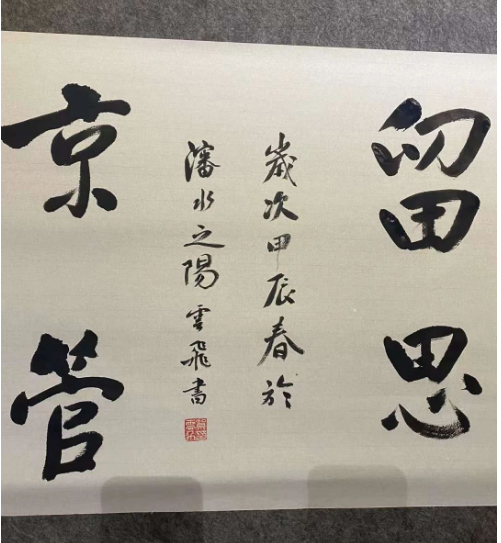 留思
歲次甲辰春於
瀋水之陽雲飛書
京管